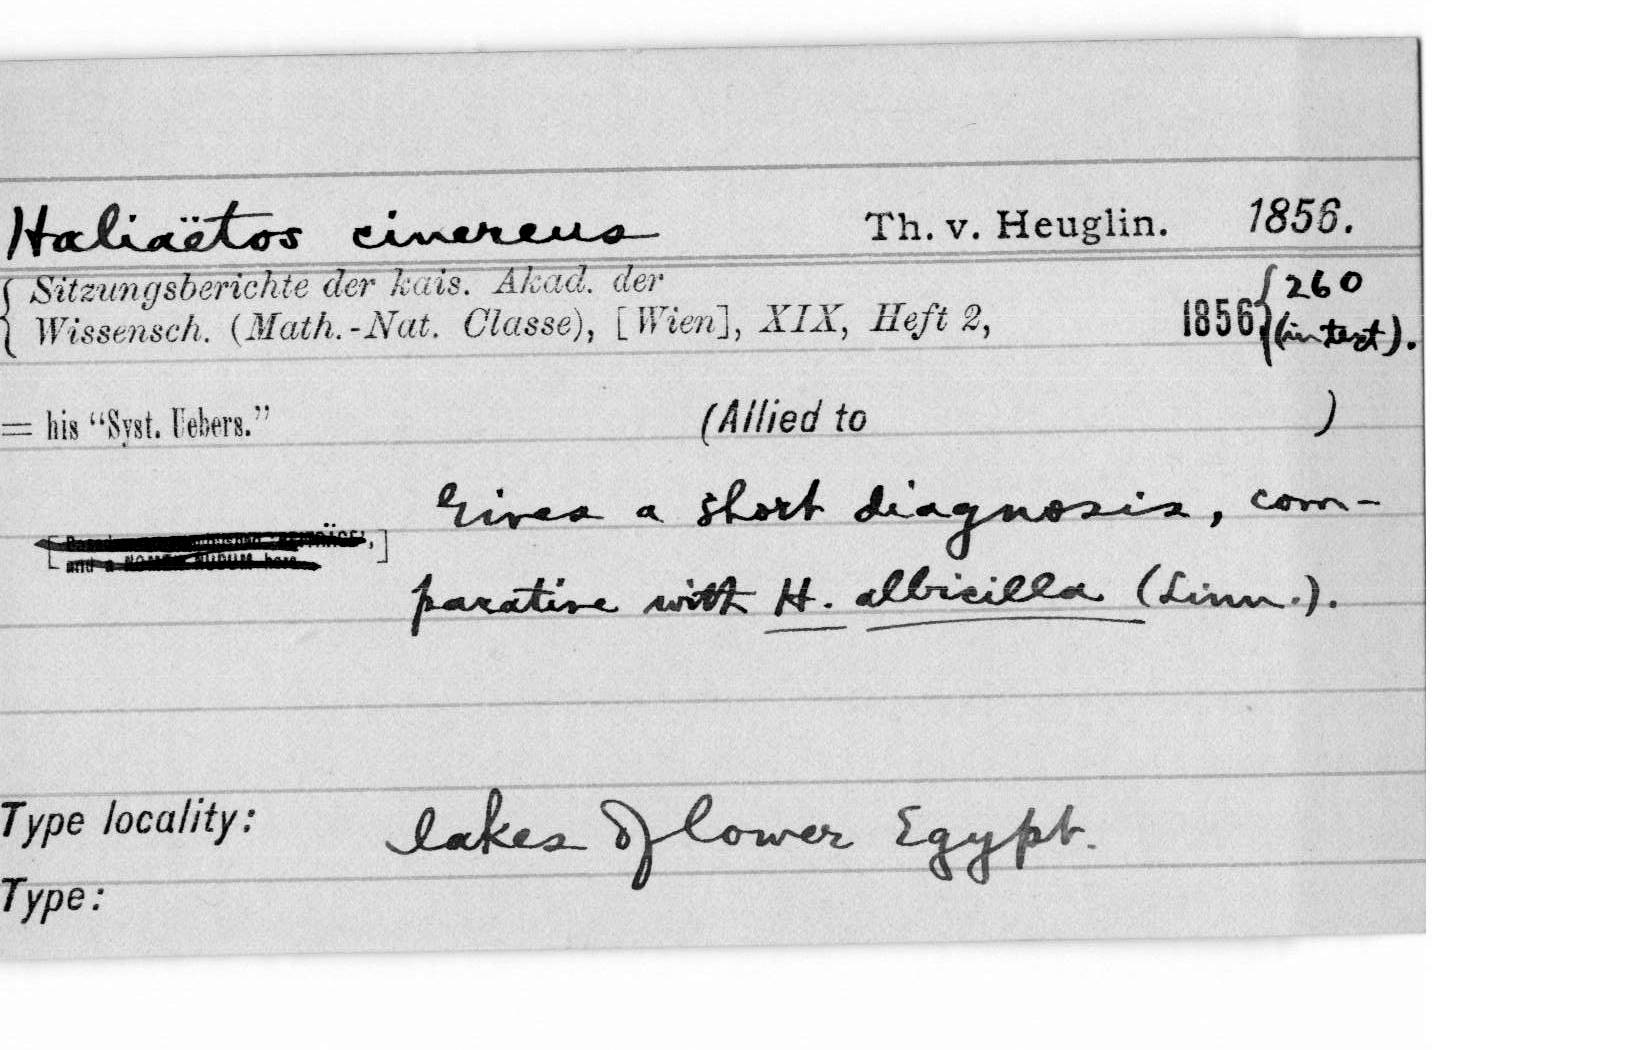 Haliaëtos cinereus Th. v. Heuglin. 1856.
Sitzungsberichte der kais. Akad. der
Wissensch. (Math.-Nat. Classe), [Wien], XIX, Heft 2, 1856, 260 (in text).
= his "Syst. Uebers." (Allied to )
Gives a short diagnosis, com-
and a NOMEN NUDUM here.
parative with H. albicilla (Linn.).
Type locality: lakes of lower Egypt.
Type: